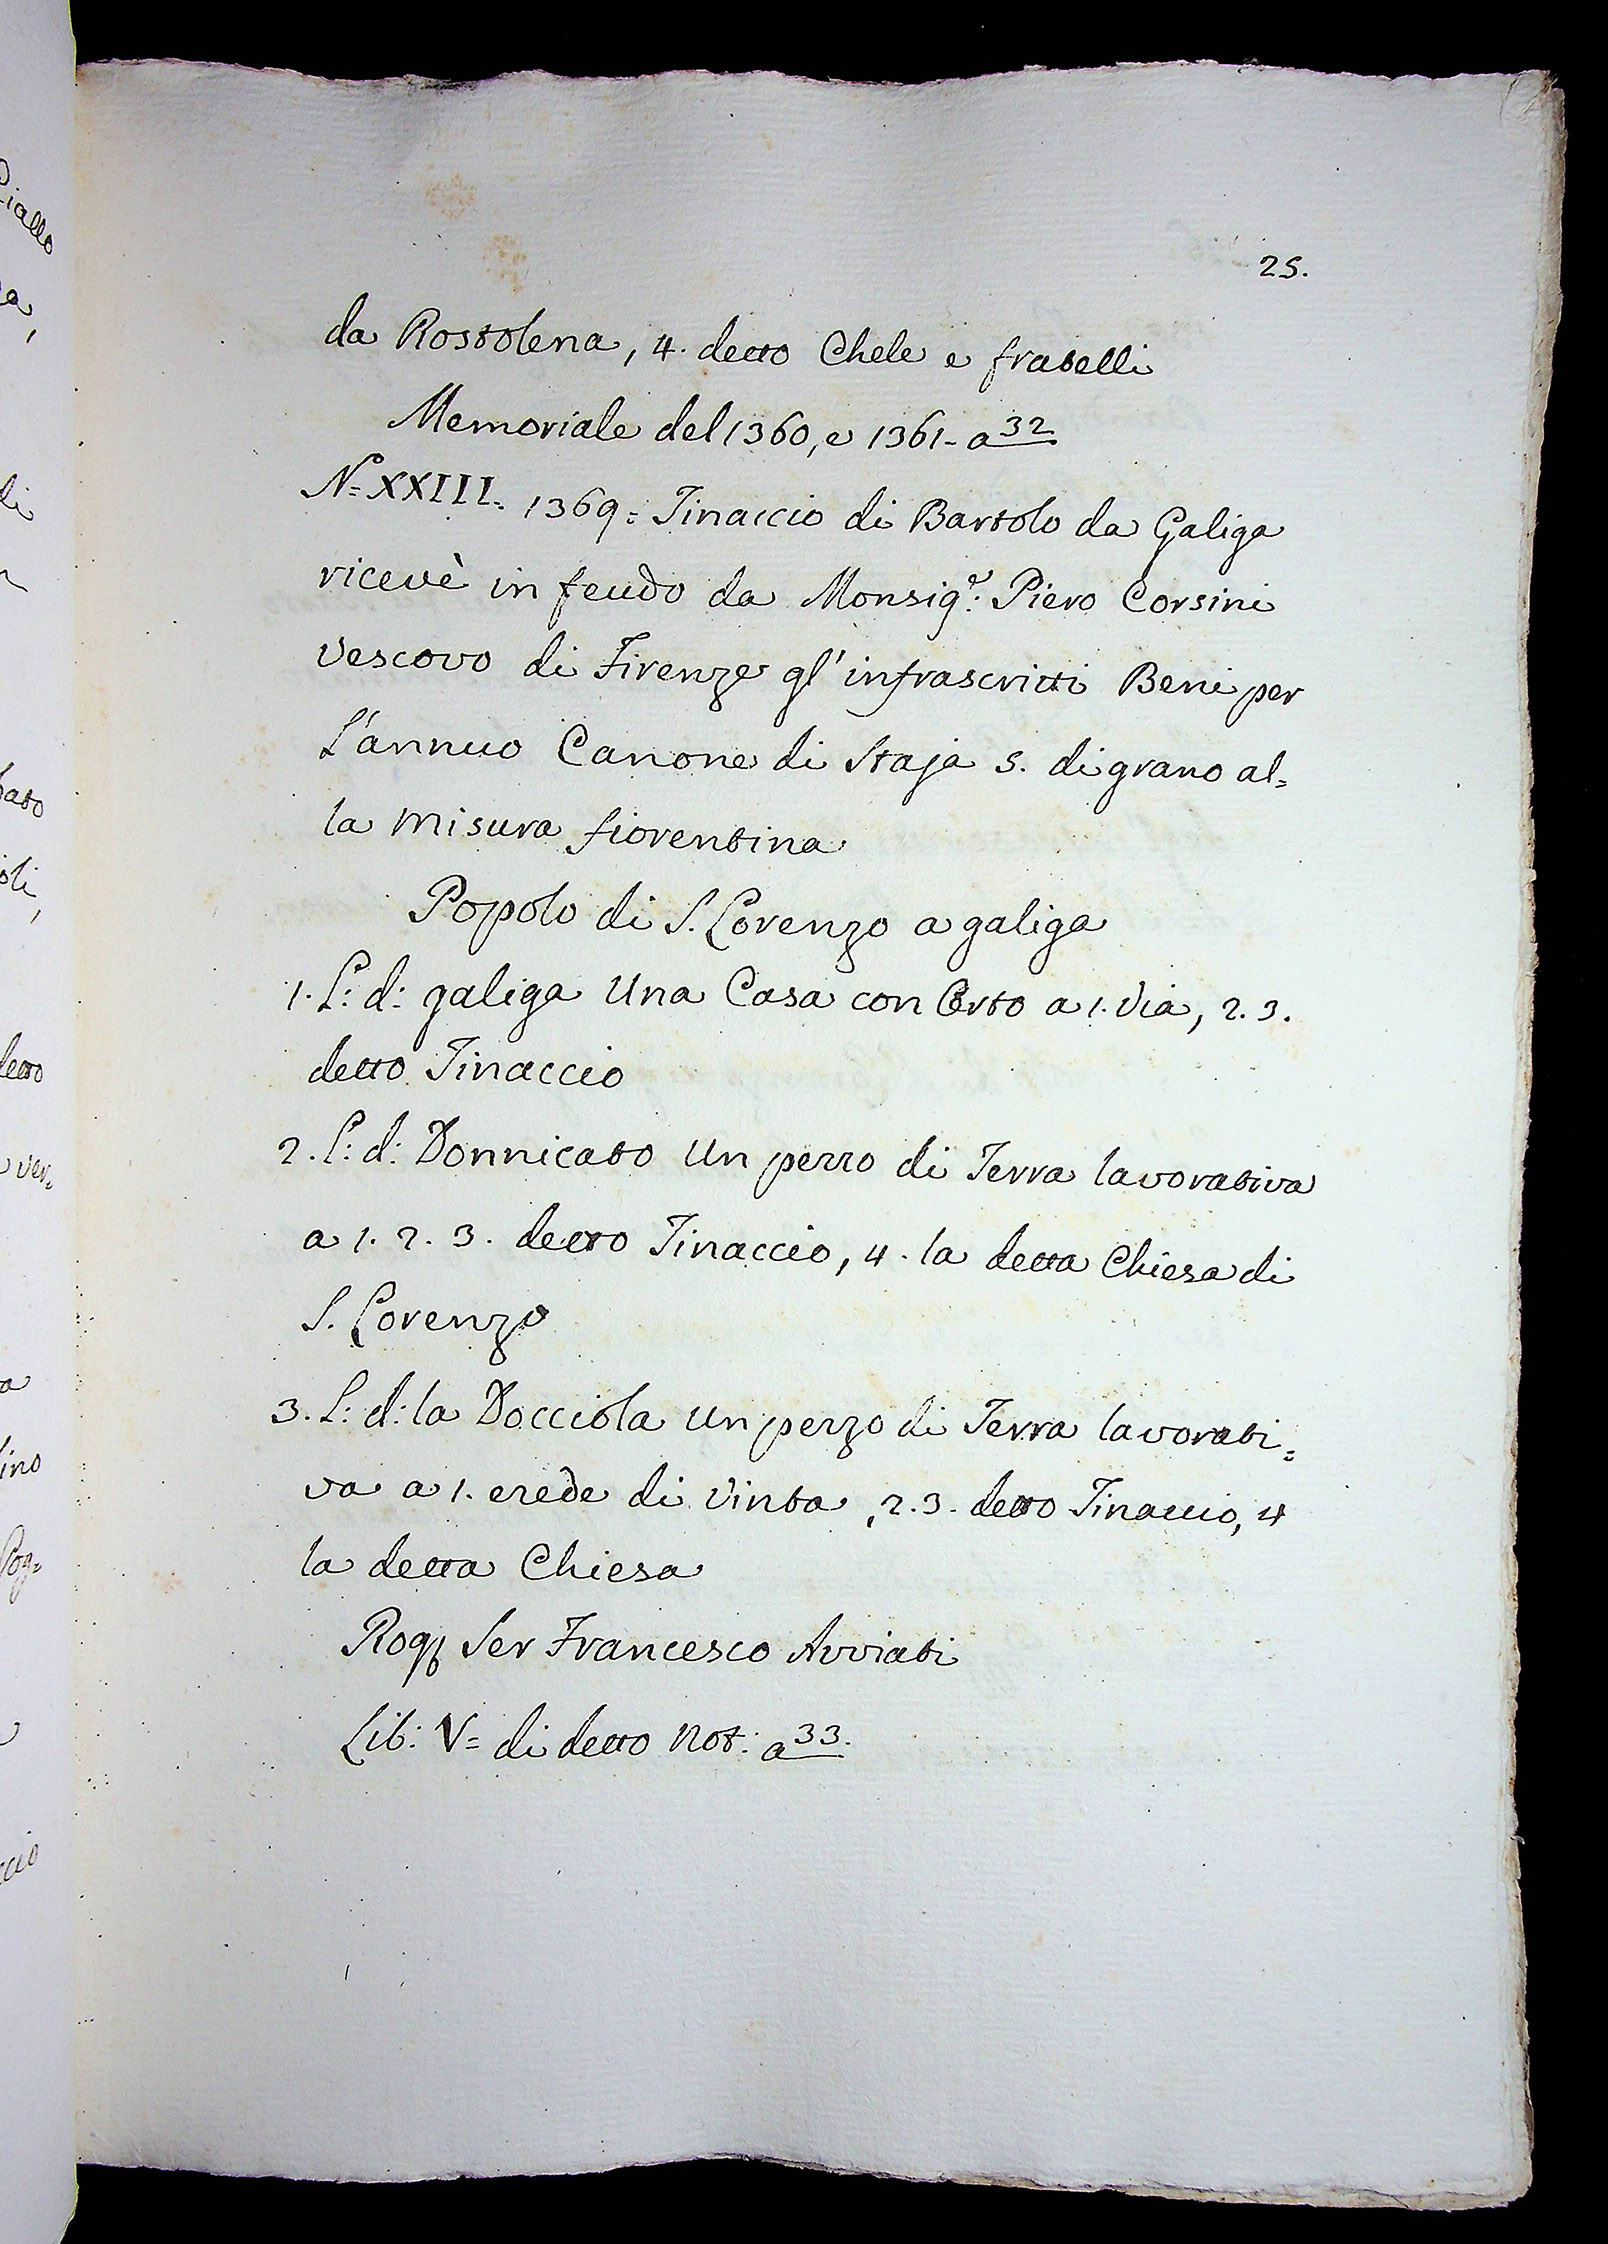 25.
da Rostolena, 4. detto Chele e fratelli
Memoriale del 1360, e 1361 - a 32
N.º XXIII. 1369 = Tinaccio di Bartolo da Galiga
ricevè in feudo da Monsig.e: Piero Corsini
Vescovo di Firenze gl'infrascritti Beni per
L'annuo Canone di Staja 5. di grano al=
la misura fiorentina
Popolo di S. Lorenzo a galiga
1. L: d: galiga Una Casa con Orto a 1. Via, 2. 3.
detto Tinaccio
2. L: d: Donnicato Un pezzo di Terra lavorativa
a 1. 2. 3. detto Tinaccio, 4. la detta Chiesa di
S. Lorenzo
3. L: d: la Docciola Un pezzo di Terra lavorati=
va a 1. erede di Vinta, 2. 3. detto Tinaccio, 4
la detta Chiesa
Rog. Ser Francesco Avviati
Lib: V= di detto Not: a 33.